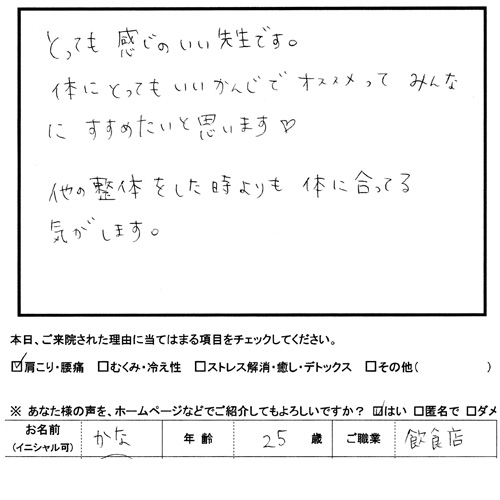 とっても 感じの いい 先生です。
体に とっても いい かんじで オススメって みんな
に すすめたいと 思います♡
他の 整体 を した 時よりも 体に 合ってる
気が します。
本日、ご来院された理由に当てはまる項目をチェックしてください。
☑肩こり・腰痛 □むくみ・冷え性 □ストレス解消・癒し・デトックス □その他( )
※ あなた様の声を、ホームページなどでご紹介してもよろしいですか? ☑はい □匿名で □ダメ
お名前 (イニシャル可) かな 年 齢 25 歳 ご職業 飲食店